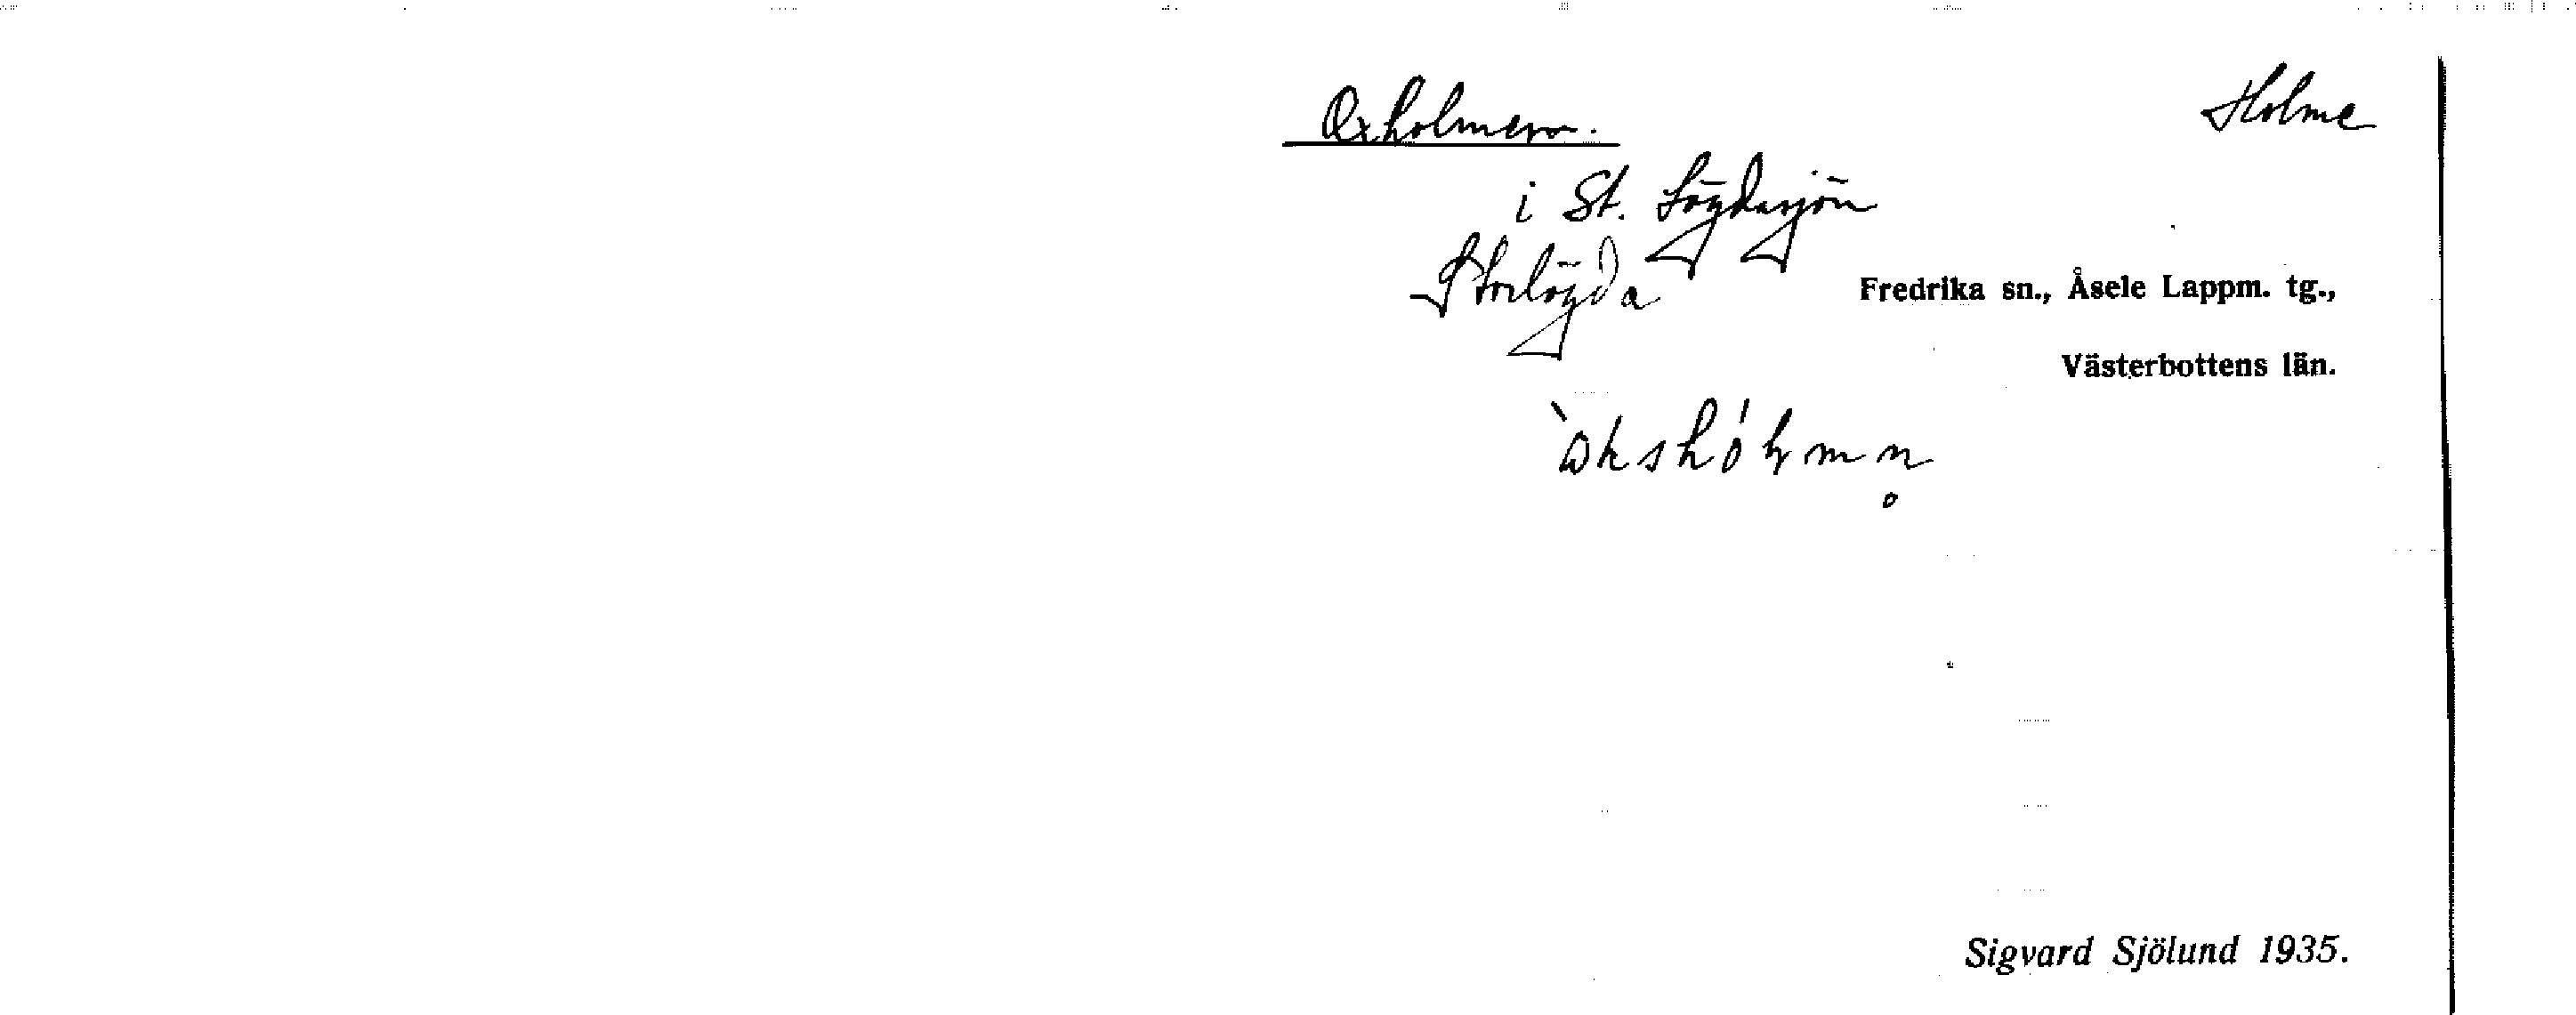 Oxholmen.
Holme
i St. Lögdasjön
Storlögda
Fredrika sn., Åsele Lappm. tg.,
Västerbottens län.
Sigvard Sjölund 1935.